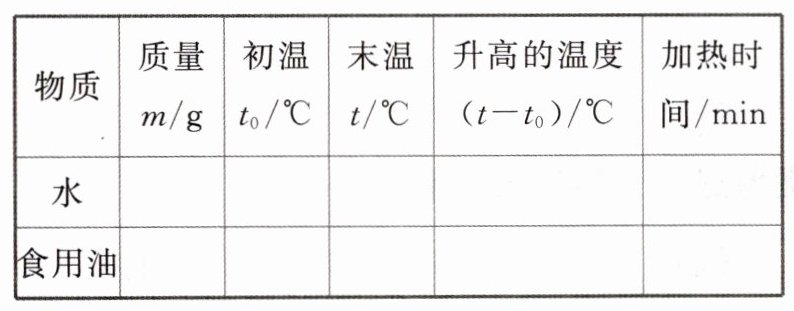 物质 质量 m/g 初温 t₀/℃ 末温 t/℃ 升高的温度 (t－t₀)/℃ 加热时间/min
水
食用油